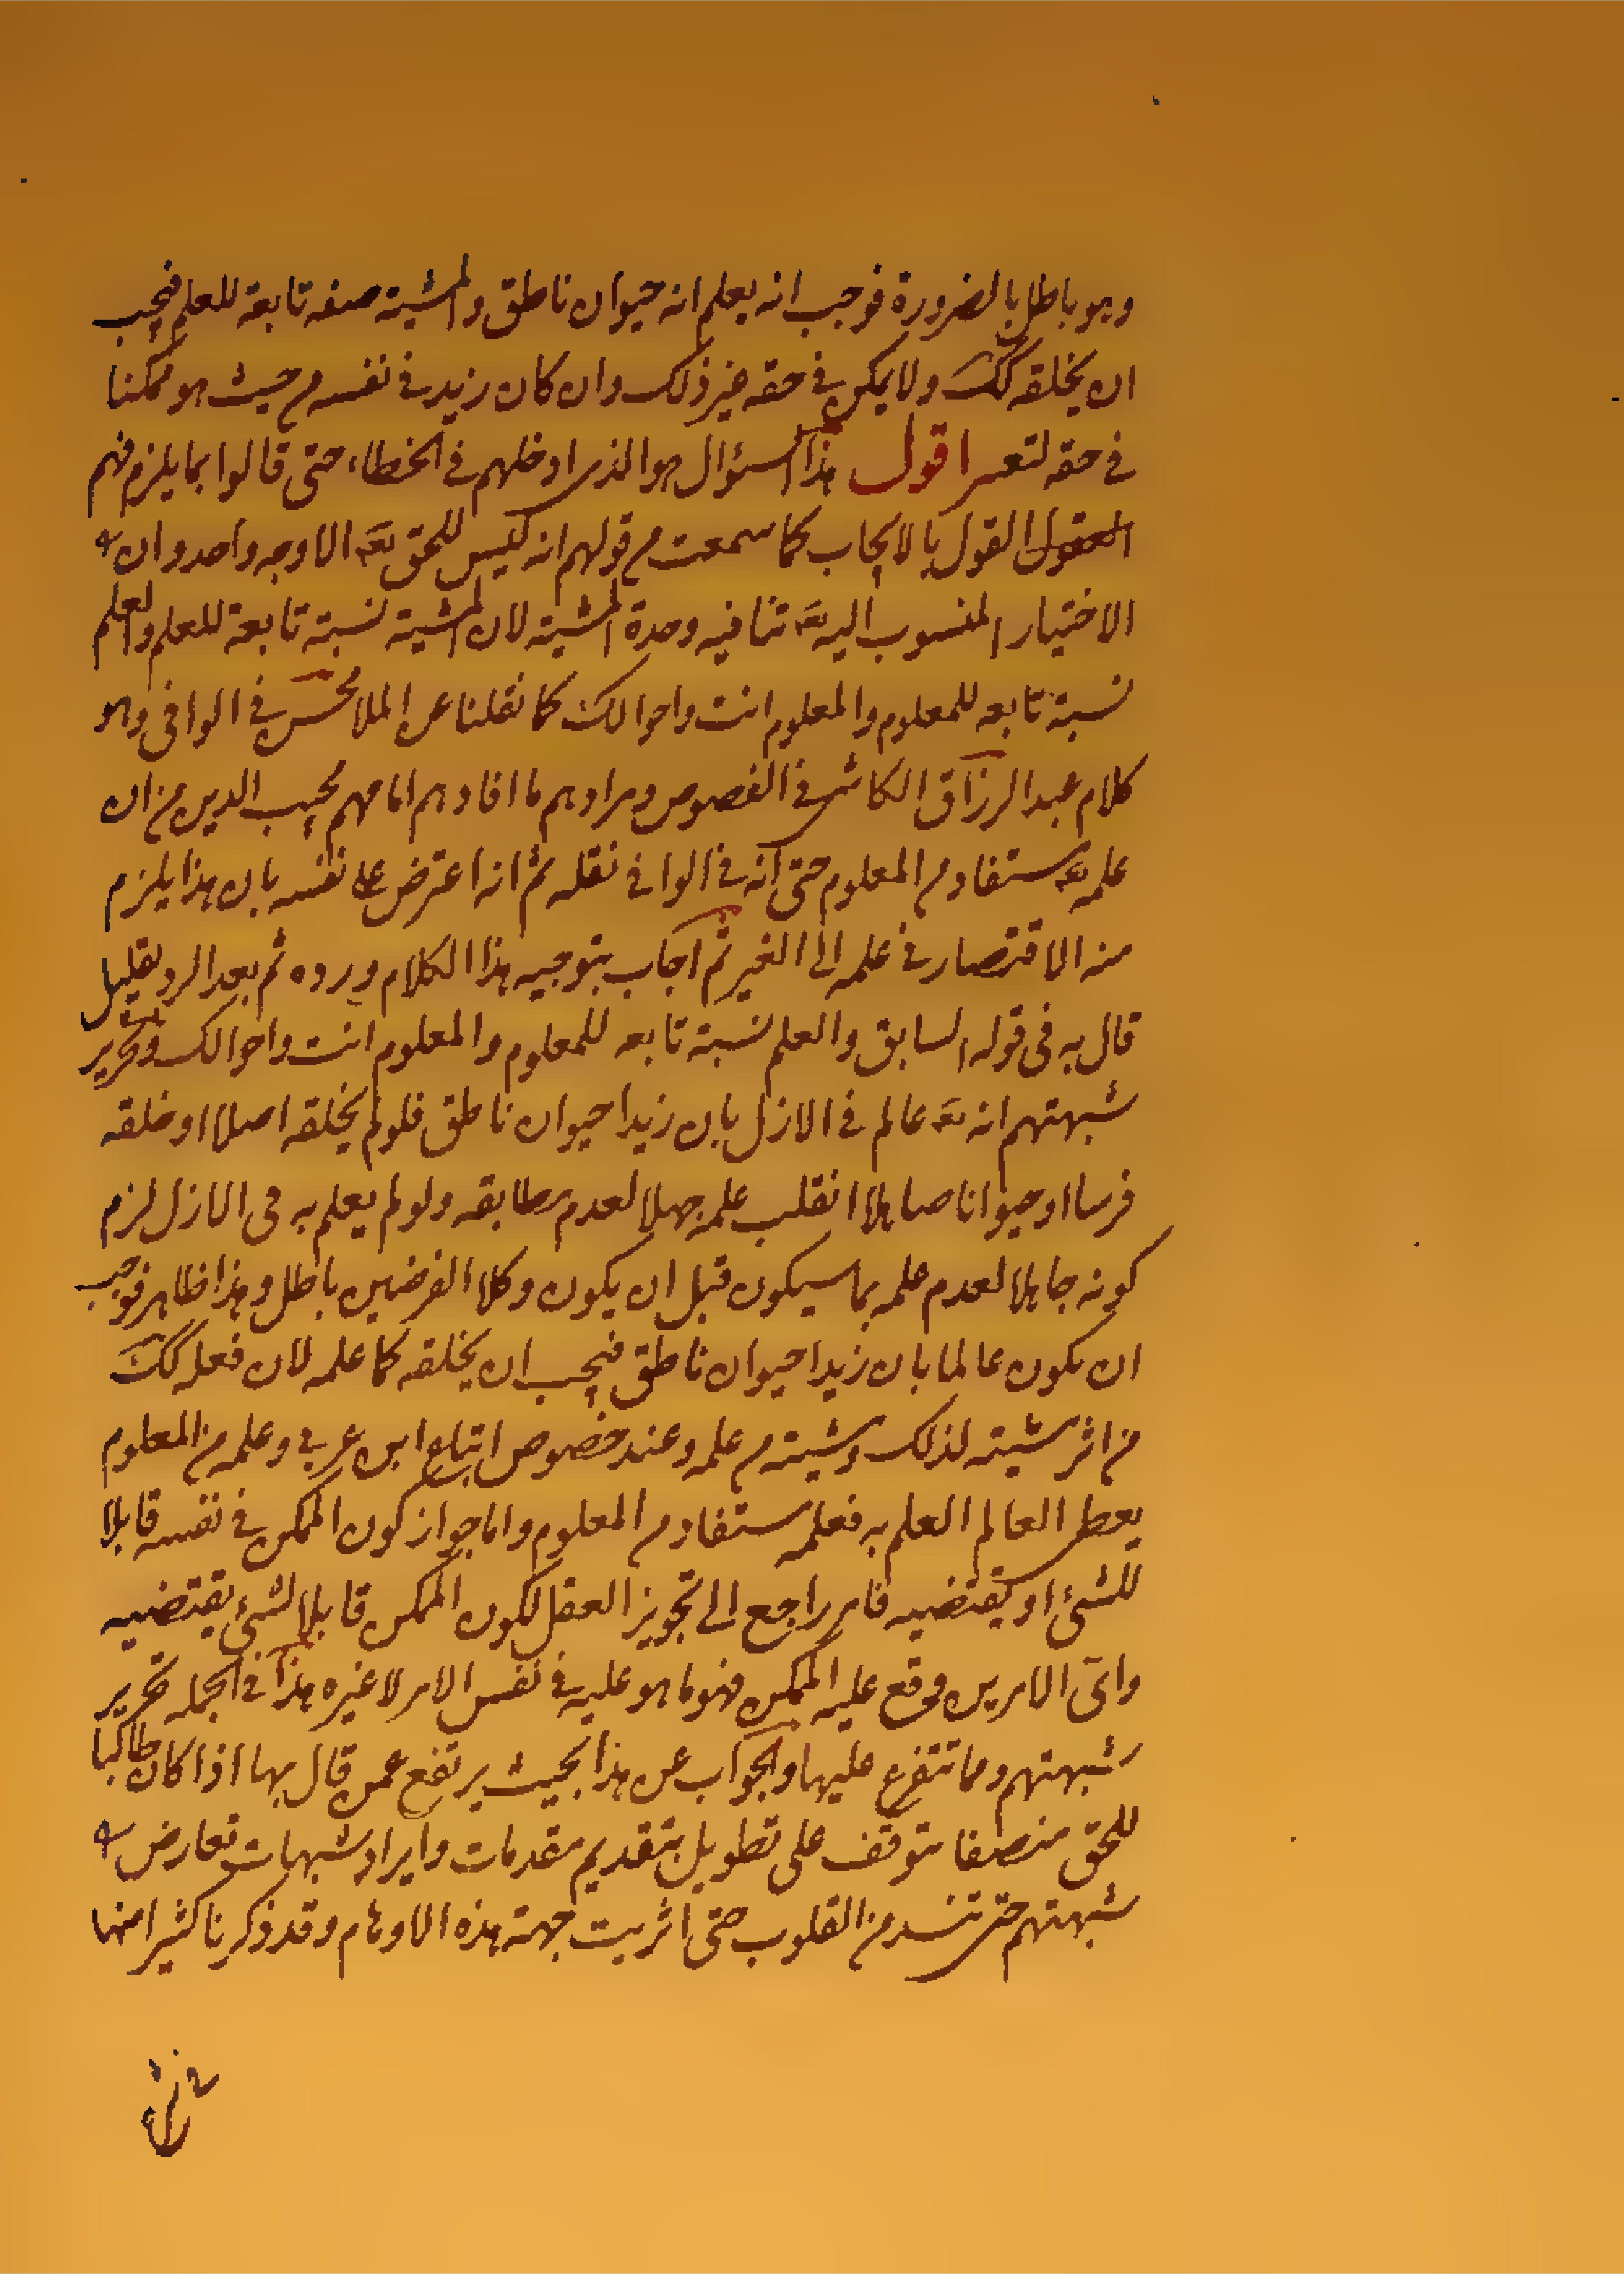 وهو باطل بالضرورة فوجب انه يعلم انه حيوان ناطق والمشية صفه تابعة للعلم فيجب
ان يخلقه كك ولا يمكن في حقه غير ذلك وان كان زيد في نفسه من حيث هو ممكنا
في حقه اقول هذا السؤال هو الذى ادخلهم في الخطاء حتى قالوا بما يلزم منهم
القول بالايجاب كما سمعت من قولهم انه ليس للحق تعه الا وجه واحد وان
الاختيار المنسوب اليه تعه تنافيه وحدة المشية لان المشية نسبة تابعة للعلم والعلم
نسبة تابعه للمعلوم والمعلوم انت واحوالك كما نقلنا عن الملا محسن في الوافى وهو
كلام عبد الرزاق الكاشى في الفصوص ومرادهم ما افادهم امامهم مميت الدين من ان
علمه تعه مستفاد من المعلوم حتى انه في الوافى نقله ثم انه اعترض على نفسه بان هذا يلزم
منه الاقتصار في علمه الى الغير ثم اجاب بتوجيه هذا الكلام ورده ثم بعد الرد بقليل
قال به فى قوله السابق والعلم نسبة تابعه للمعلوم والمعلوم انت واحوالك وتحرير
شبهتهم انه تعه عالم في الازل بان زيدا حيوان ناطق فلو لم يخلقه اصلا او خلقه
فرسا او حيوانا صاهلا انقلب علمه جهلا لعدم مطابقه ولو لم يعلم به فى الازل لزم
كونه جاهلا لعدم علمه بما سيكون قبل ان يكون وكلا الفرضين باطل وهذا ظاهر فوجب
ان يكون عالما بان زيدا حيوان ناطق فيجب ان يخلقه كما علمه لان فعله كك
من اثر مشيته لذلك ومشيته من علمه وعند خصوص اتباع ابن عربي وعلمه من المعلوم
يعطى العالم العلم به فعلمه مستفاد من المعلوم واما جواز كون الممكن في نفسه قابلا
للشئ او يقتضيه فامر راجع الى تجويز العقل لكون الممكن قابلا لشئ يقتضيه
واىّ الامرين وقع عليه الممكن فهو ما هو عليه في نفس الامر لا غيره هذا في الجمله تحرير
شبهتهم ومما تتفرع عليها والجواب عن هذا بحيث يرتفع عمن قال بها اذا كان طالبا
للحق منصفا يتوقف على تطويل بتقديم مقدمات وايراد شبهات تعارض
شبهتهم حتى من القلوب حتى جهة هذه الاوهام وقد ذكرنا كثيرا منها